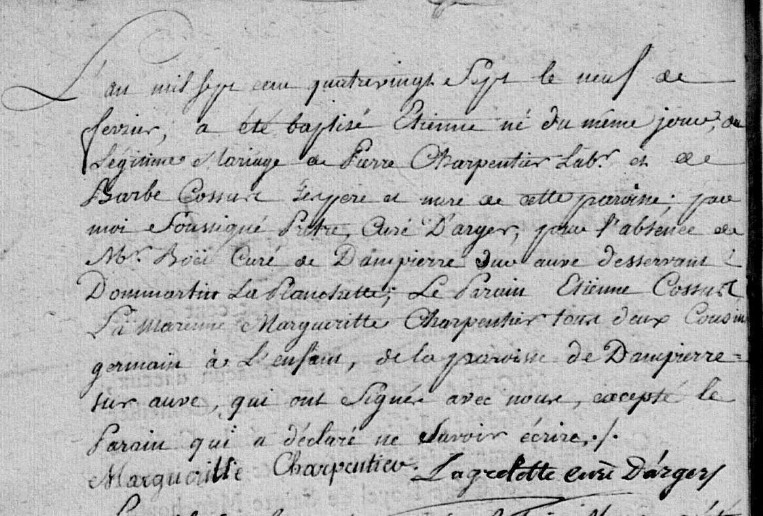 L'an mil sept cent quatrevingt Sept le neuf de
fevrier, a été baptisé Etienne né du même jour, du
Légitime Mariage de Pierre Charpentier Labr. et de
Barbe Cossart ses pere et mere de cette paroisse; par
moi Soussigné Prêtre, Curé D'arger, pour l'absence de
Mr. Boëi Curé de Dampierre sur auve desservant
Dommartin La Planchette; Le Parain Etienne Cossart
La Maraine Margueritte Charpentier tous deux Cousin
germain à L'enfant, de la paroisse de Dampierre=
sur auve, qui ont Signée avec nous, excepté le
Parain qui a déclaré ne Savoir écrire, ./.
Margueritte Charpentier. Lagrelette curé D'argers